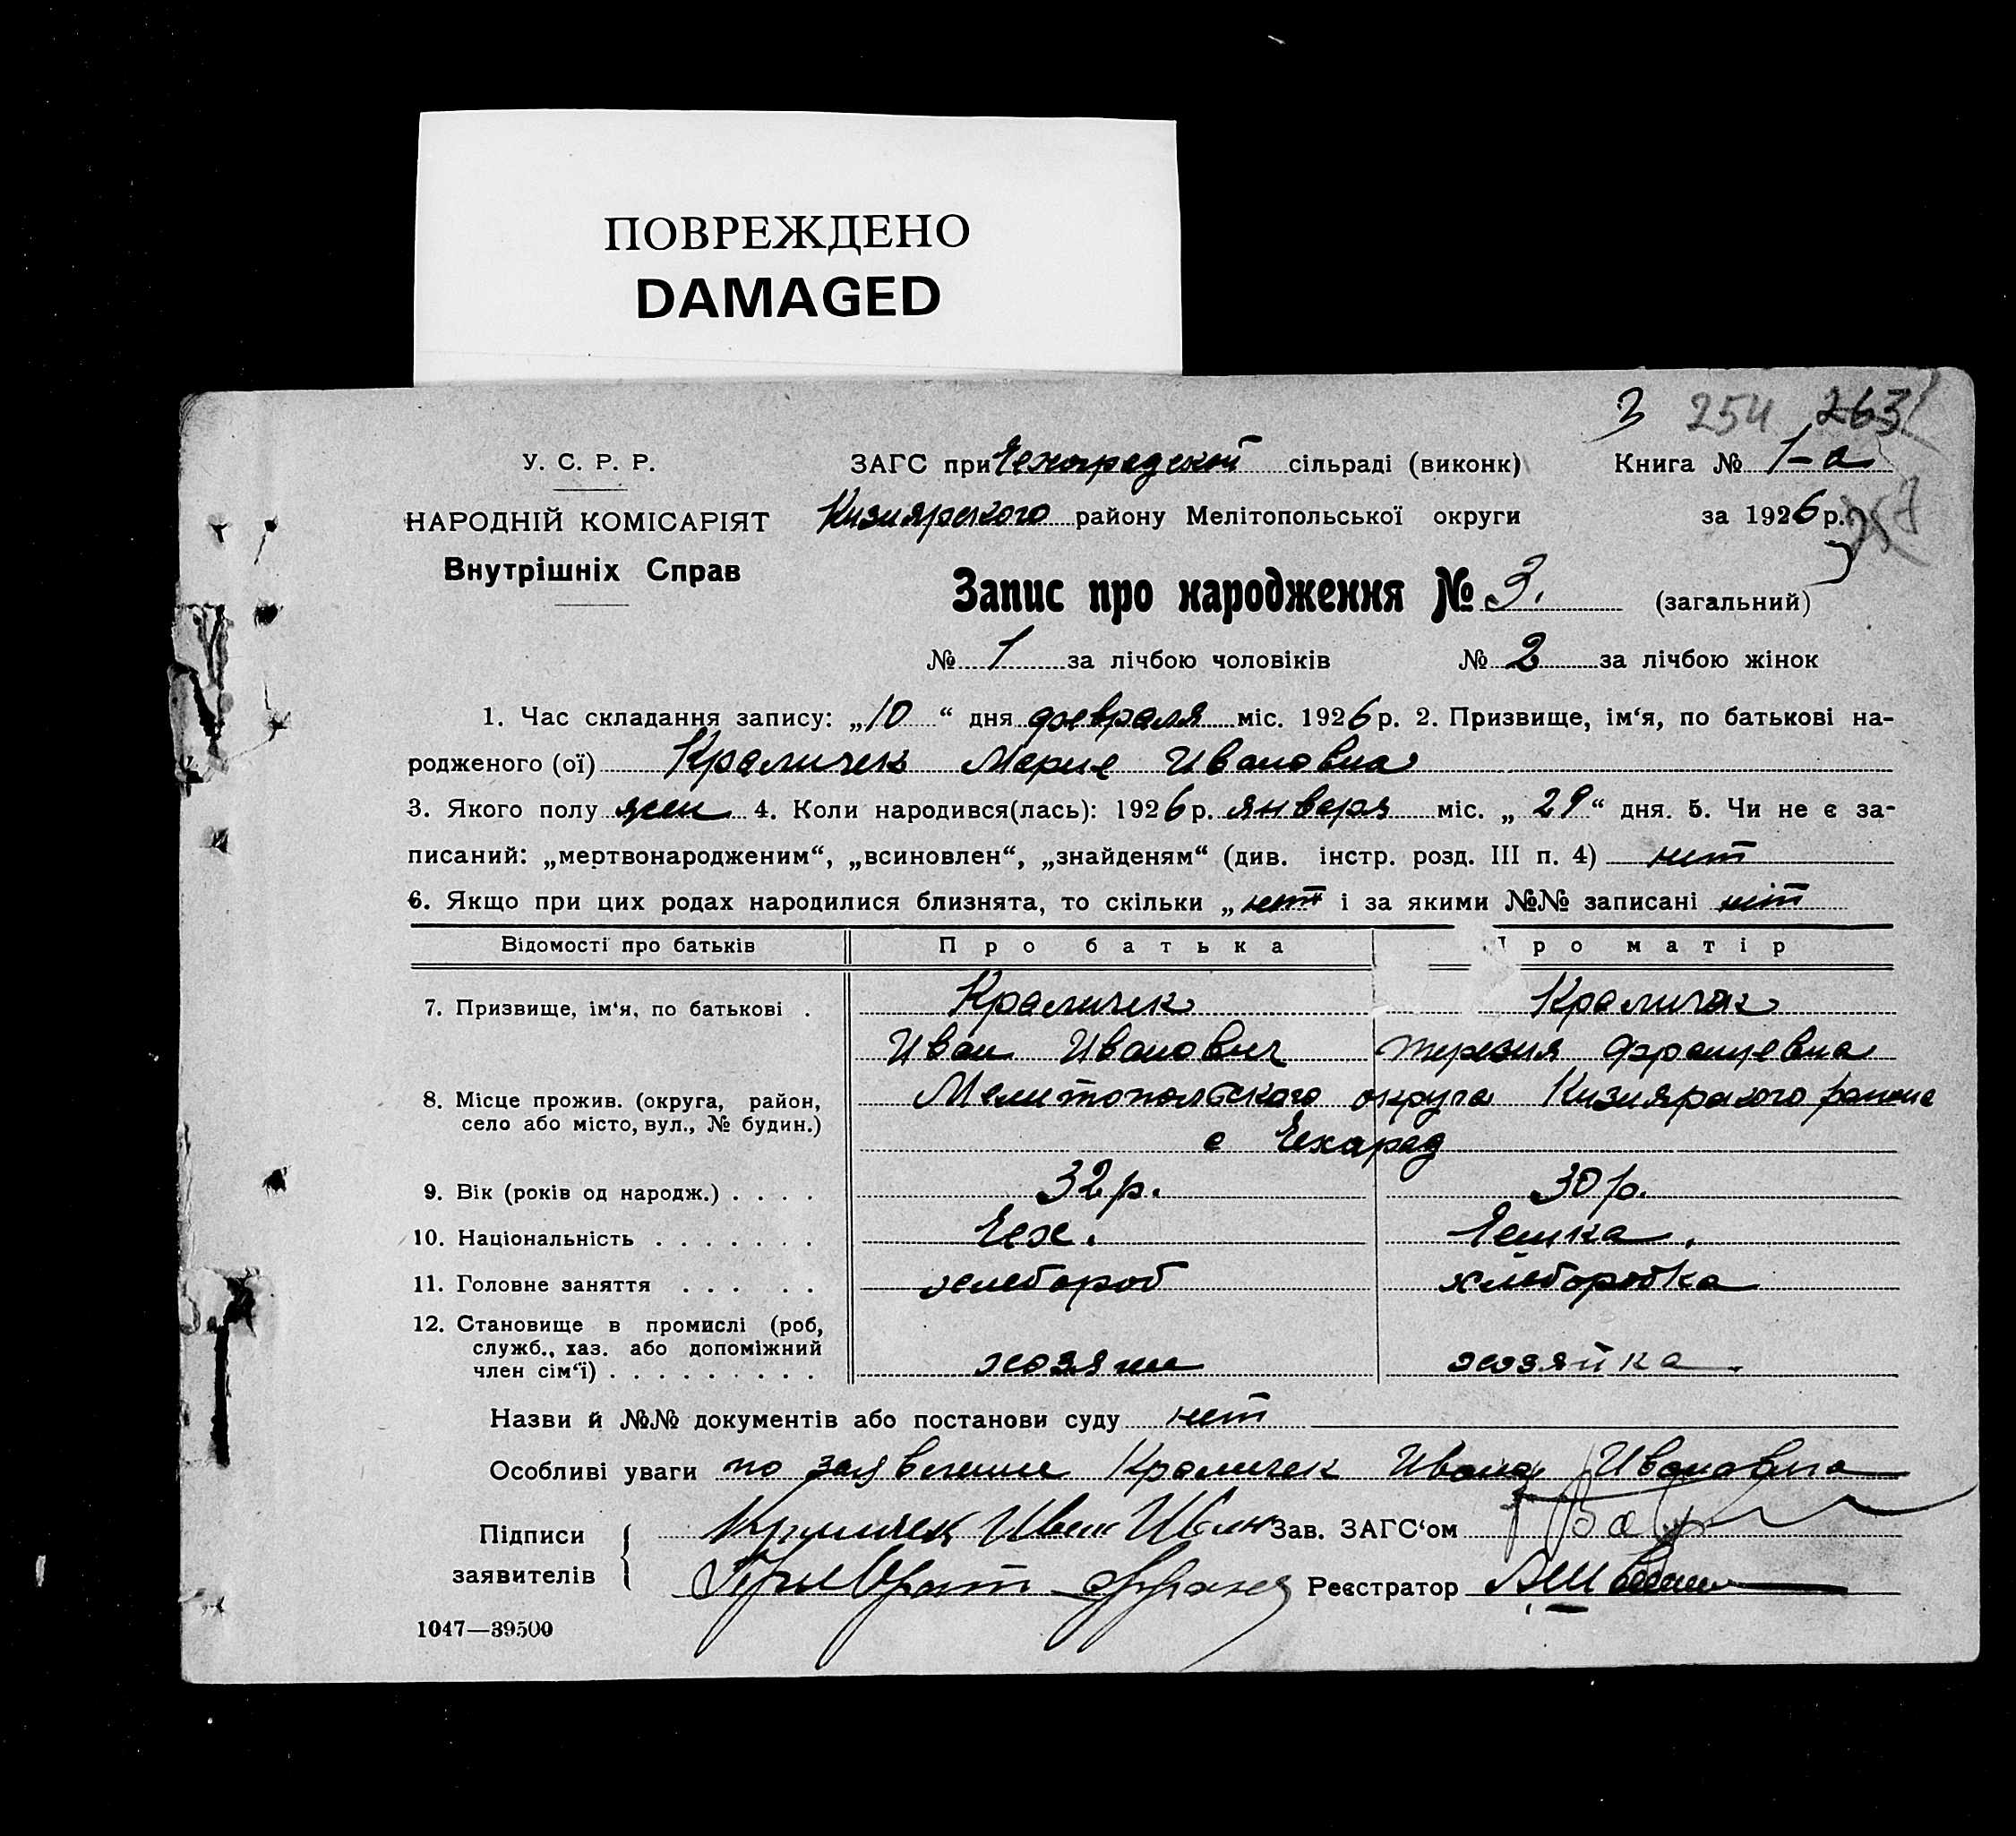 ПОВРЕЖДЕНО
DAMAGED
3 254 263
У. С. Р. Р.
НАРОДНІЙ КОМІСАРІЯТ
Внутрішніх Справ
ЗАГС при Чехоградской сільраді (виконк) Книга № 1-а
Кизиярского району Мелітопольської округи за 1926 р.
Запис про народження № 3. (загальний)
№ 1 за лічбою чоловіків № 2 за лічбою жінок
1. Час складання запису: „10“ дня февраля міс. 1926 р. 2. Призвище, ім‘я, по батькові на-
родженого (ої) Краличек Мария Ивановна
3. Якого полу жен 4. Коли народився(лась): 1926 р. января міс. „29“ дня. 5. Чи не є за-
писаний: „мертвонародженим“, „всиновлен“, „знайденям“ (див. інстр. розд. III п. 4) нет
6. Якщо при цих родах народилися близнята, то скільки „нет“ і за якими №№ записані нет
Відомості про батьків Про батька Про матір
7. Призвище, ім‘я, по батькові . Краличек Краличек
Иван Иванович Терезия Францевна
8. Місце прожив. (округа, район, село або місто, вул., № будин.) Мелитопольского округа Кизиярского района
с Чехоград
9. Вік (років од народж.) . . . . 32 р. 30 р.
10. Національність . . . . . . . Чех. Чешка.
11. Головне заняття . . . . . хлебороб хлеборобка
12. Становище в промислі (роб, служб., хаз. або допоміжний член сім‘ї) . . . . . . . . . хозяин хозяйка.
Назви й №№ документів або постанови суду нет
Особливі уваги по заявлению Краличек Ивана Ивановича
Підписи заявителів Краличек Иван Иван Зав. ЗАГС‘ом
Франц Реєстратор
1047—39500